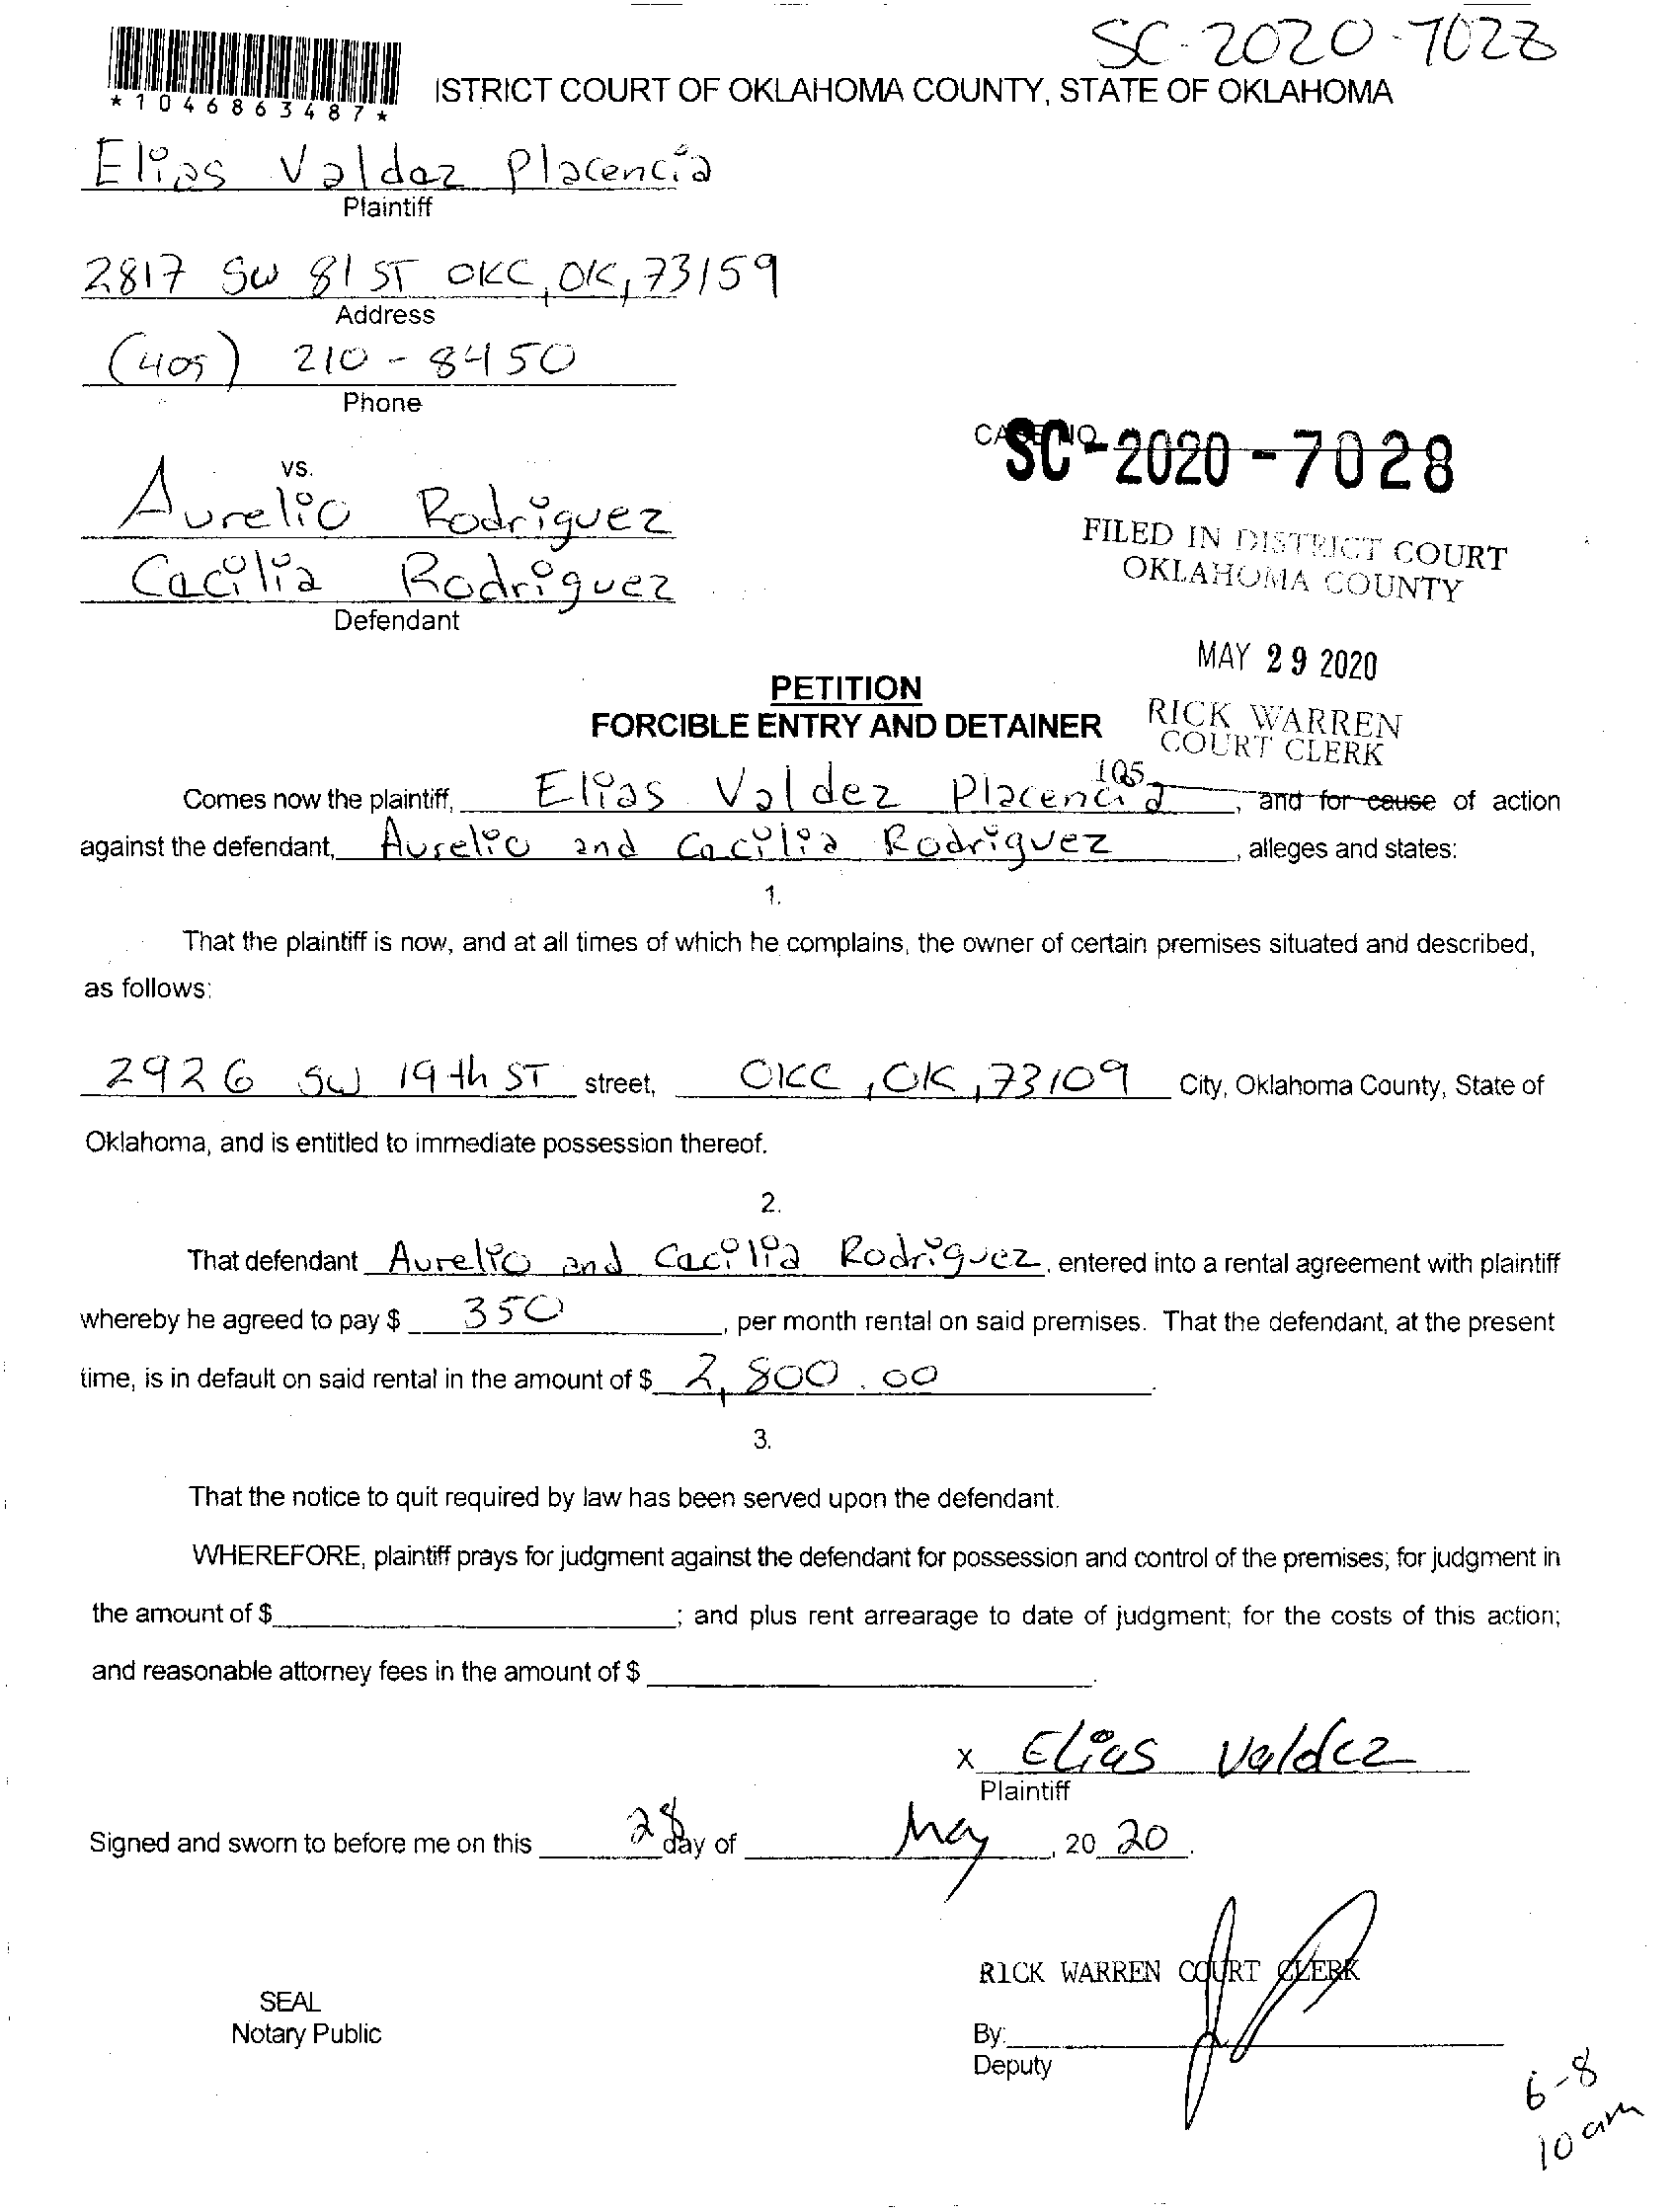 SC-2020-7028
*1046863487*
ISTRICT COURT OF OKLAHOMA COUNTY, STATE OF OKLAHOMA
Elias Valdez Placencia
Plaintiff
2817 SW 81 ST OKC, OK, 73159
Address
(405) 210-8450
Phone
SC-2020-7028
vs.
Aurelio Rodriguez
Cacilia Rodriguez
Defendant
FILED IN DISTRICT COURT
OKLAHOMA COUNTY
MAY 29 2020
RICK WARREN
COURT CLERK
105
PETITION
FORCIBLE ENTRY AND DETAINER
Comes now the plaintiff, Elias Valdez Placencia, and for cause of action
against the defendant, Aurelio and Cacilia Rodriguez, alleges and states:
1.
That the plaintiff is now, and at all times of which he complains, the owner of certain premises situated and described,
as follows:
2926 SW 19th ST street, OKC, OK, 73109 City, Oklahoma County, State of
Oklahoma, and is entitled to immediate possession thereof.
2.
That defendant Aurelio and Cacilia Rodriguez, entered into a rental agreement with plaintiff
whereby he agreed to pay $ 350, per month rental on said premises. That the defendant, at the present
time, is in default on said rental in the amount of $ 2,800.00.
3.
That the notice to quit required by law has been served upon the defendant.
WHEREFORE, plaintiff prays for judgment against the defendant for possession and control of the premises; for judgment in
the amount of $; and plus rent arrearage to date of judgment; for the costs of this action;
and reasonable attorney fees in the amount of $.
x Elias Valdez
Plaintiff
Signed and sworn to before me on this 28 day of May, 2020.
RICK WARREN COURT CLERK
SEAL
Notary Public
By:
Deputy
6-8
10 am